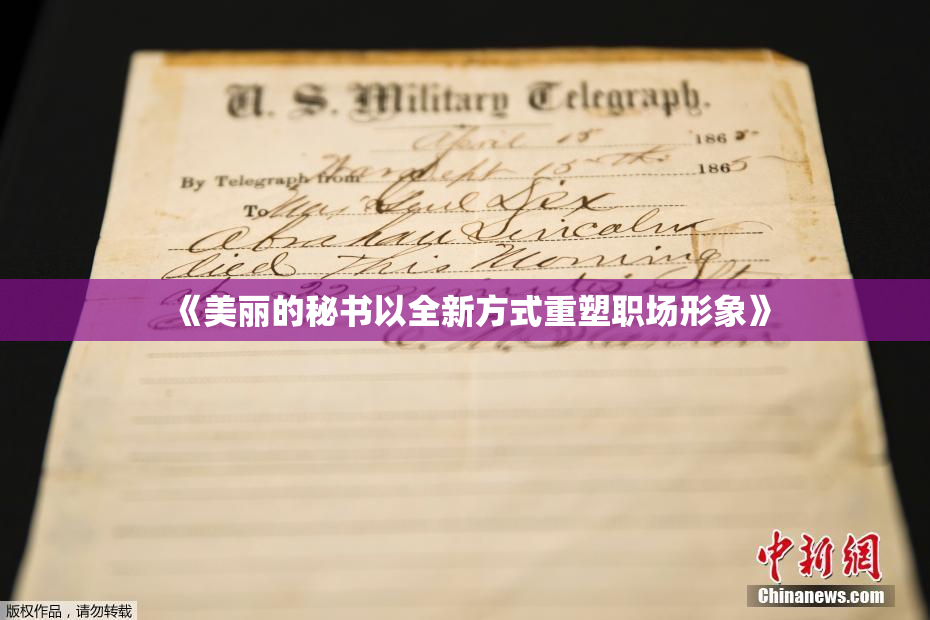 U. S. Military Telegraph.
April 15 1865
By Telegraph from War Dept 15th 1865
To Maj Genl Dix
Abraham Lincoln
died This Morning
22 minutes after
《美丽的秘书以全新方式重塑职场形象》
中新網
Chinanews.com
版权作品，请勿转载